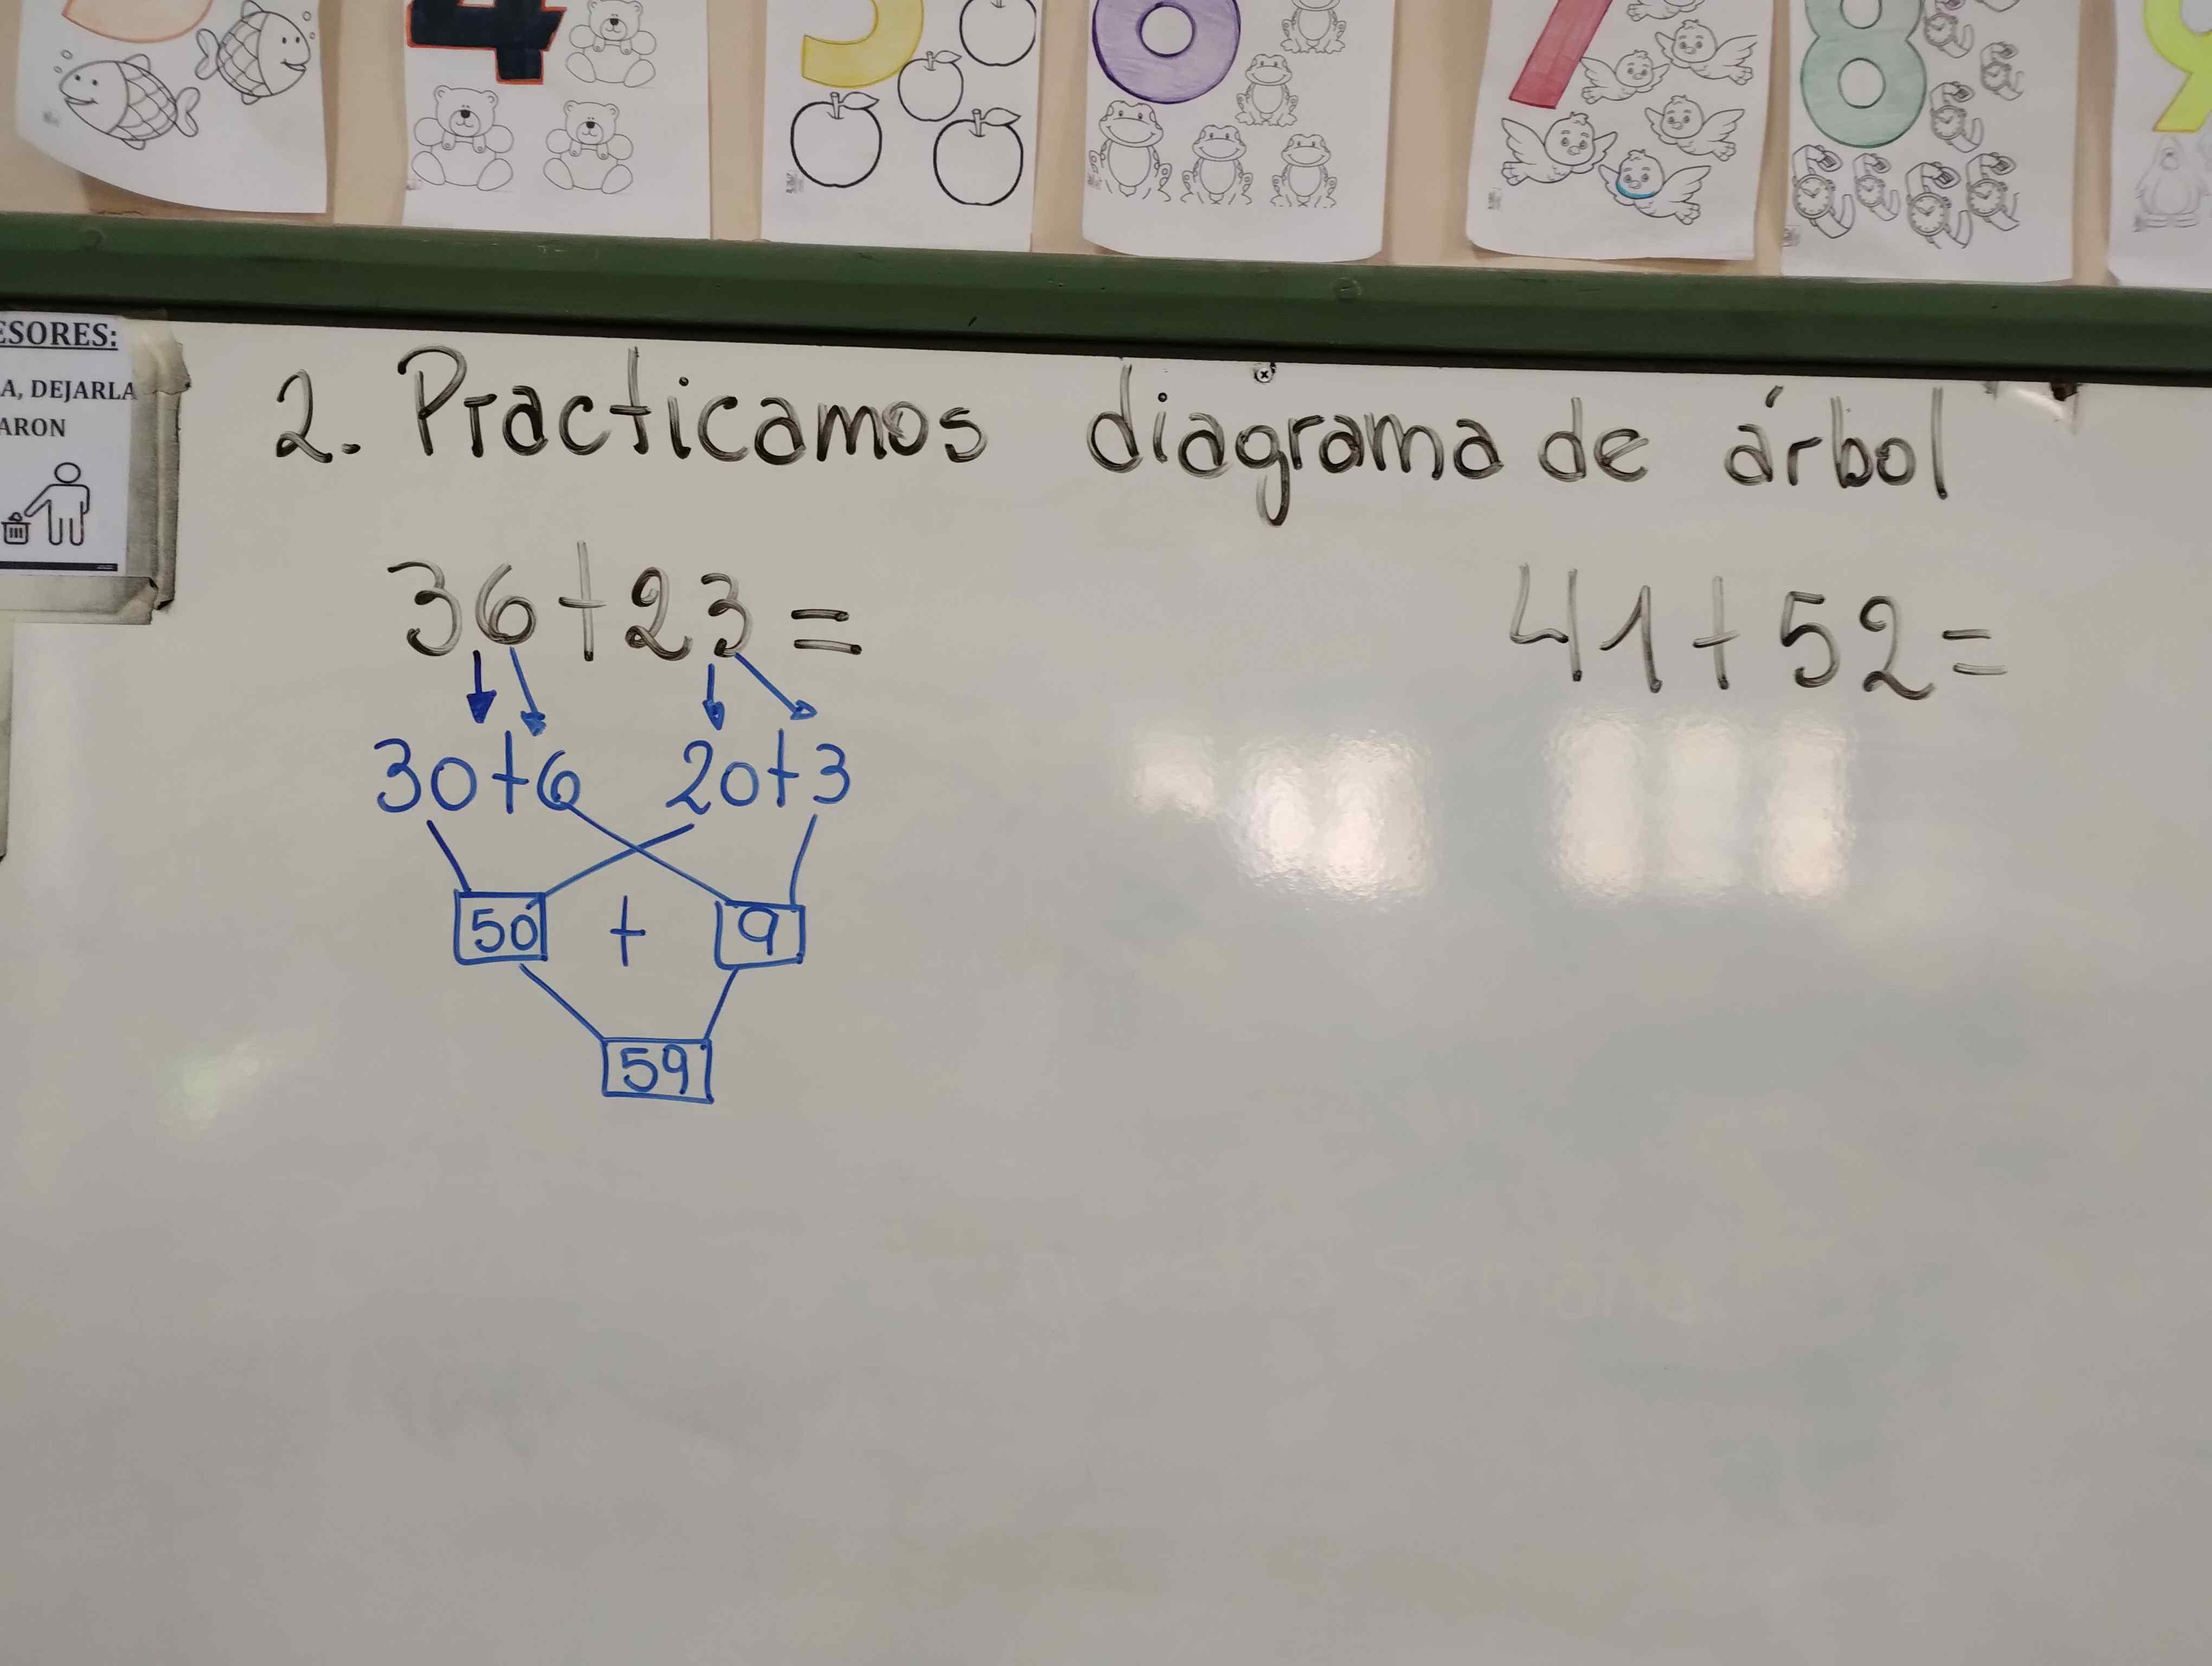 4
5
6
7
8
9
ESORES:
A, DEJARLA
ARON
2. Practicamos diagrama de árbol
36+23=
41+52=
30+6 20+3
50 + 9
59